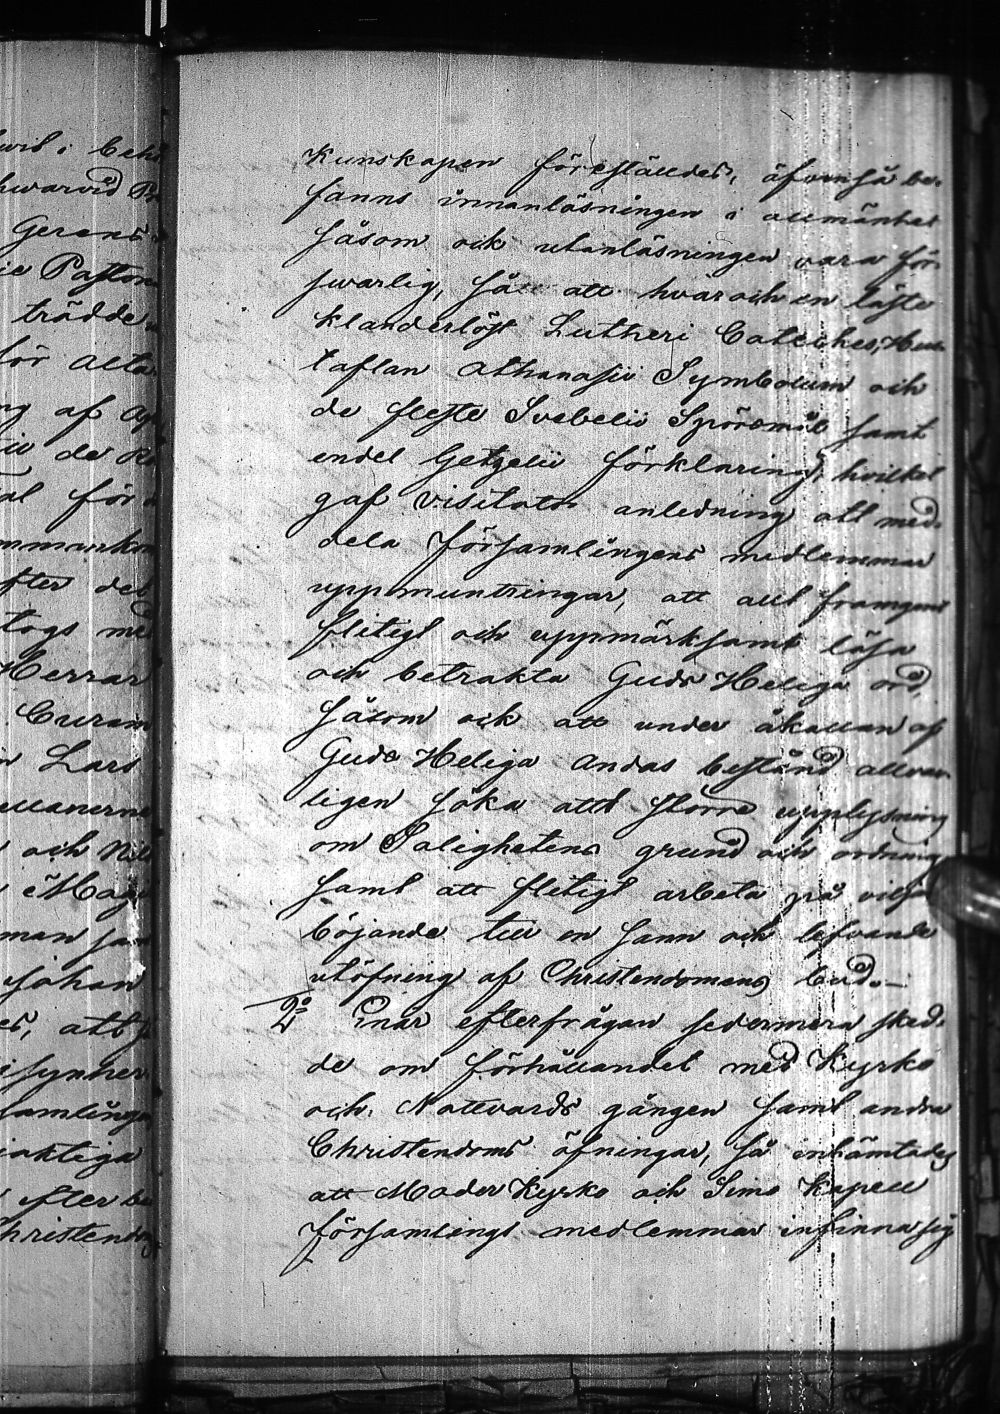 wid i behö
hwarvid Pr
Gerens
ie Pastor
trädde
för alta
ng af
de
al för
ommunion
fter det
togs med
Herrar
Curam
Lars
och Nils
man sam
Johan
es, att
isynner
samlinga
aktiga
efter be
hristendo
Kunskapen föreställdes, äfvenså be-
fanns innanläsningen i allmänhet
såsom ock utanläsningen vara för-
svarlig, så att hvar och en läste
klanderlöst Lutheri Cateches, Hus-
taflan Athanasii Symbolum och
de fleste Svebelii Spörsmål samt
endel Getzelii förklaring, hvilket
gaf Visitator anledning att med-
dela Församlingens medlemmar
uppmuntringar, att allt framgent
flitigt och uppmärksamt läsa
och betrakta Guds Heliga ord,
såsom ock att under åkallan af
Guds Heliga Andas bistånd allvar-
ligen söka allt större upplysning
om Salighetens grund och ordning
samt att flitigt arbeta på vilja
böjande till en sann och lefvande
utöfning af Christendomens bud.—
2o När efterfrågan sedermera sked-
de om förhållandet med Kyrko
och Nattvards gången samt andra
Christendoms öfningar, så inhämtades
att Moder Kyrko och Simo Kapell
församlings medlemmar infinna sig